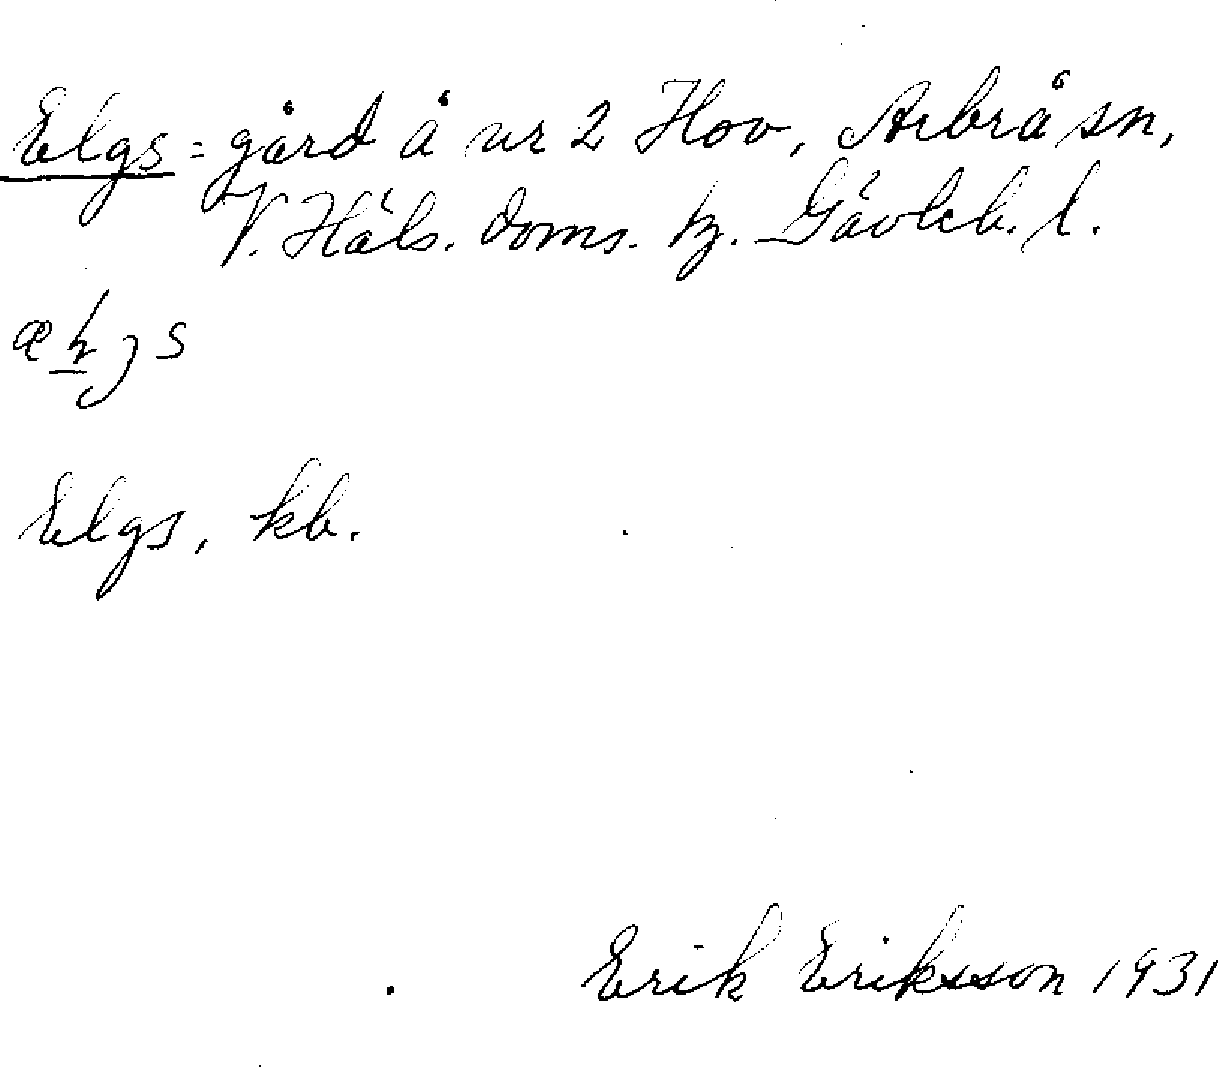 Elgs = gård å nr 2 Hov, Arbrå sn,
V. Häls. doms. tg. Gävleb. l.
Elgs, kb.
Erik Eriksson 1931